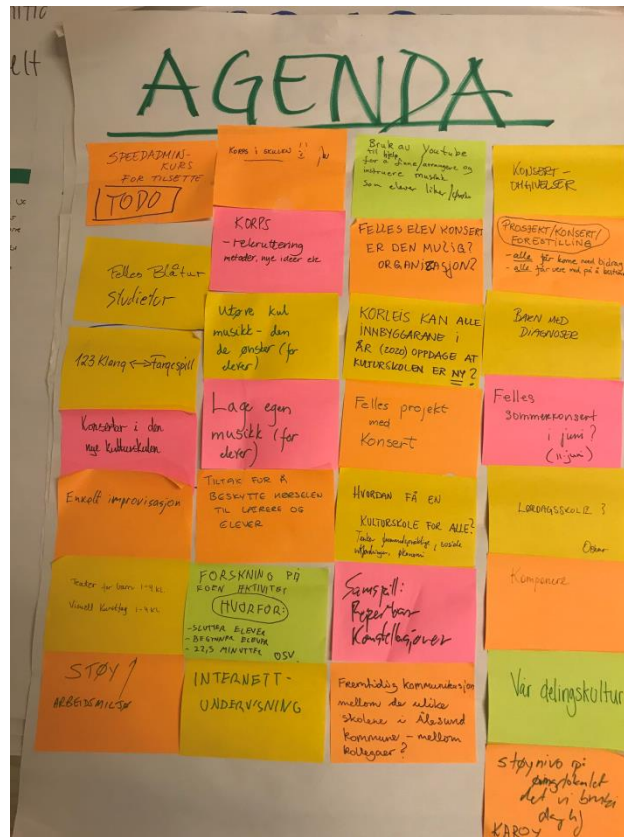 elt
AGENDA
SPEEDADMIN-
KURS
FOR TILSETTE
TODO
Felles Blåtur
Studietur
123 Klang <-> Fargespill
Konserter i den
nye kulturskolen
Enkelt improvisasjon
Teater for barn 1-4 kl
Visuell Kunstfag 1-4 kl
STØY
ARBEIDSMILJØ
KORPS I SKULEN
KORPS
- rekruttering
metoder, nye idéer etc
Utøve kul
musikk - den
de ønsker (for
elever)
Lage egen
musikk (for
elever)
TILTAK FOR Å
BESKYTTE HØRSELEN
TIL LÆRERE OG
ELEVER
FORSKNING PÅ
EGEN AKTIVITET
HVORFOR:
- SLUTTER ELEVER
- BEGYNNER ELEVER
- 22,5 MINUTTER OSV
INTERNETT-
UNDERVISNING
Bruk av Youtube
til hjelp
for å finne/arrangere og
instruere musikk
som elever liker
FELLES ELEV KONSERT
ER DEN MULIG?
ORGANIZASJON?
KORLEIS KAN ALLE
INNBYGGARANE I
ÅR (2020) OPPDAGE AT
KULTURSKOLEN ER NY?
Felles projekt
med
Konsert
HVORDAN FÅ EN
KULTURSKOLE FOR ALLE?
Samspill:
Repertoar
Konstellasjoner
Fremtidig kommunikasjon
mellom de ulike
skolene i Ålesund
kommune - mellom
kollegaer?
KONSERT-
OMGIVELSER
PROSJEKT/KONSERT/
FORESTILLING
- alle får komme med bidrag
- alle får vere med på å bestemme
BARN MED
DIAGNOSER
Felles
sommerkonsert
i juni?
(11. juni)
LØRDAGSSKOLE?
Komponere
Vår delingskultur
støynivo på
det vi
KAROY